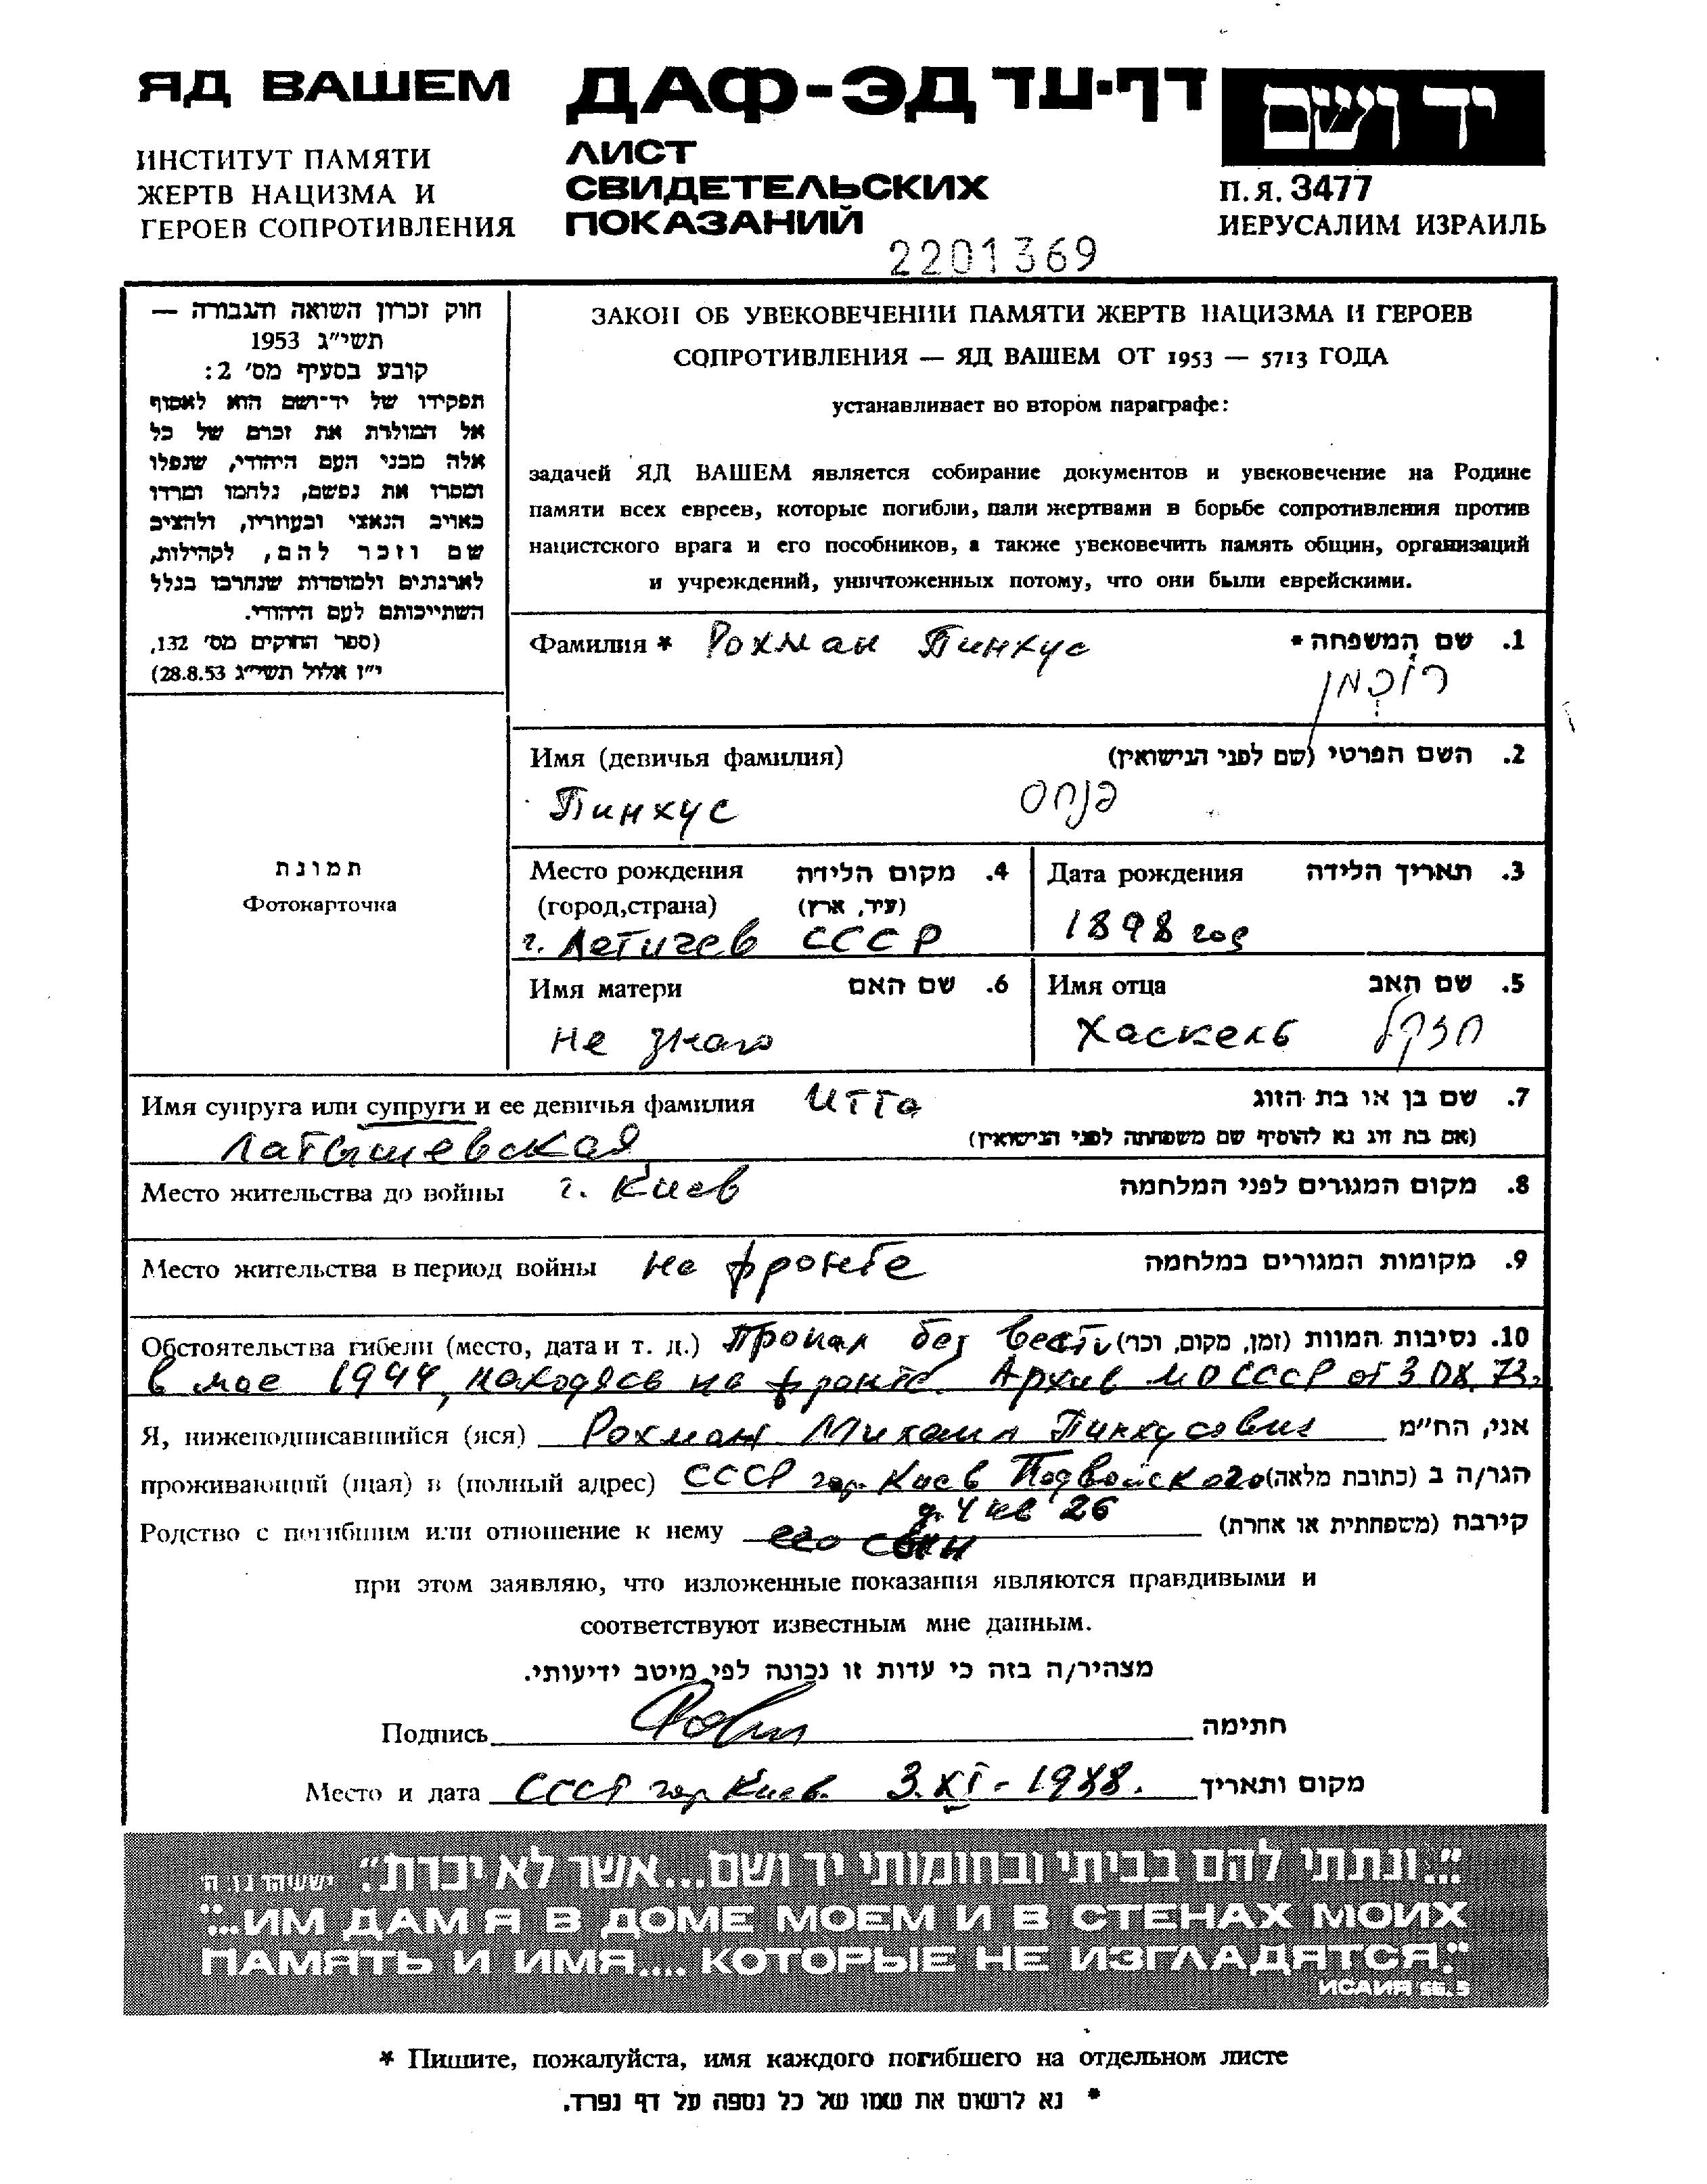 ЯД ВАШЕМ
ИНСТИТУТ ПАМЯТИ
ЖЕРТВ НАЦИЗМА И
ГЕРОЕВ СОПРОТИВЛЕНИЯ
ДАФ-ЭД דף-עד
ЛИСТ
СВИДЕТЕЛЬСКИХ
ПОКАЗАНИЙ
2201369
יד ושם
П.Я. 3477
ИЕРУСАЛИМ ИЗРАИЛЬ
חוק זכרון השואה והגבורה —
תשי״ג 1953
קובע בסעיף מס׳ 2:
תפקידו של יד־ושם הוא לאסוף
אל המולדת את זכרם של כל
אלה מבני העם היהודי, שנפלו
ומסרו את נפשם, נלחמו ומרדו
באויב הנאצי ובעוזריו, ולהציב
שם וזכר להם, לקהילות,
לארגונים ולמוסדות שנחרבו בגלל
השתייכותם לעם היהודי.
(ספר החוקים מס׳ 132,
י״ז אלול תשי״ג 28.8.53)
ЗАКОН ОБ УВЕКОВЕЧЕНИИ ПАМЯТИ ЖЕРТВ НАЦИЗМА И ГЕРОЕВ
СОПРОТИВЛЕНИЯ — ЯД ВАШЕМ ОТ 1953 — 5713 ГОДА
устанавливает во втором параграфе:
задачей ЯД ВАШЕМ является собирание документов и увековечение на Родине
памяти всех евреев, которые погибли, пали жертвами в борьбе сопротивления против
нацистского врага и его пособников, а также увековечить память общин, организаций
и учреждений, уничтоженных потому, что они были еврейскими.
Фамилия * Рохман Пинхус 1. שם המשפחה *
רוכמן
Имя (девичья фамилия) 2. השם הפרטי (שם לפני הנישואין)
Пинхус פנחס
תמונת
Фотокарточка
Место рождения 4. מקום הלידה
(город,страна) (עיר, ארץ)
г. Летичев СССР
Дата рождения 3. תאריך הלידה
1898 год
Имя матери 6. שם האם
не знаю
Имя отца 5. שם האב
Хаскель חזקל
Имя супруга или супруги и ее девичья фамилия Итта 7. שם בן או בת הזוג
Латышевская (אם בת זוג נא להוסיף שם משפחתה לפני הנישואין)
Место жительства до войны г. Киев 8. מקום המגורים לפני המלחמה
Место жительства в период войны на фронте 9. מקומות המגורים במלחמה
Обстоятельства гибели (место, дата и т. д.) Пропал без вести 10. נסיבות המוות (זמן, מקום, וכר)
в мае 1944, находясь на фронте. Архив МО СССР от 3.08.73.
Я, нижеподписавшийся (яся) Рохман Михаил Пинхусович אני, הח״מ
проживающий (щая) в (полный адрес) СССР гор. Киев Подвойского הגר/ה ב (כתובת מלאה)
д. 4 кв 26
Родство с погибшим или отношение к нему его сын קירבה (משפחתית או אחרת)
при этом заявляю, что изложенные показания являются правдивыми и
соответствуют известным мне данным.
מצהיר/ה בזה כי עדות זו נכונה לפי מיטב ידיעותי.
Подпись חתימה
Место и дата СССР гор. Киев. 3.XI-1988. מקום ותאריך
"...ונתתי להם בביתי ובחומותי יד ושם...אשר לא יכרת". ישעיהו נו, ה׳
"...ИМ ДАМ Я В ДОМЕ МОЕМ И В СТЕНАХ МОИХ
ПАМЯТЬ И ИМЯ.... КОТОРЫЕ НЕ ИЗГЛАДЯТСЯ."
ИСАИЯ 56.5
* Пишите, пожалуйста, имя каждого погибшего на отдельном листе
* נא לרשום את שמו של כל נספה על דף נפרד.